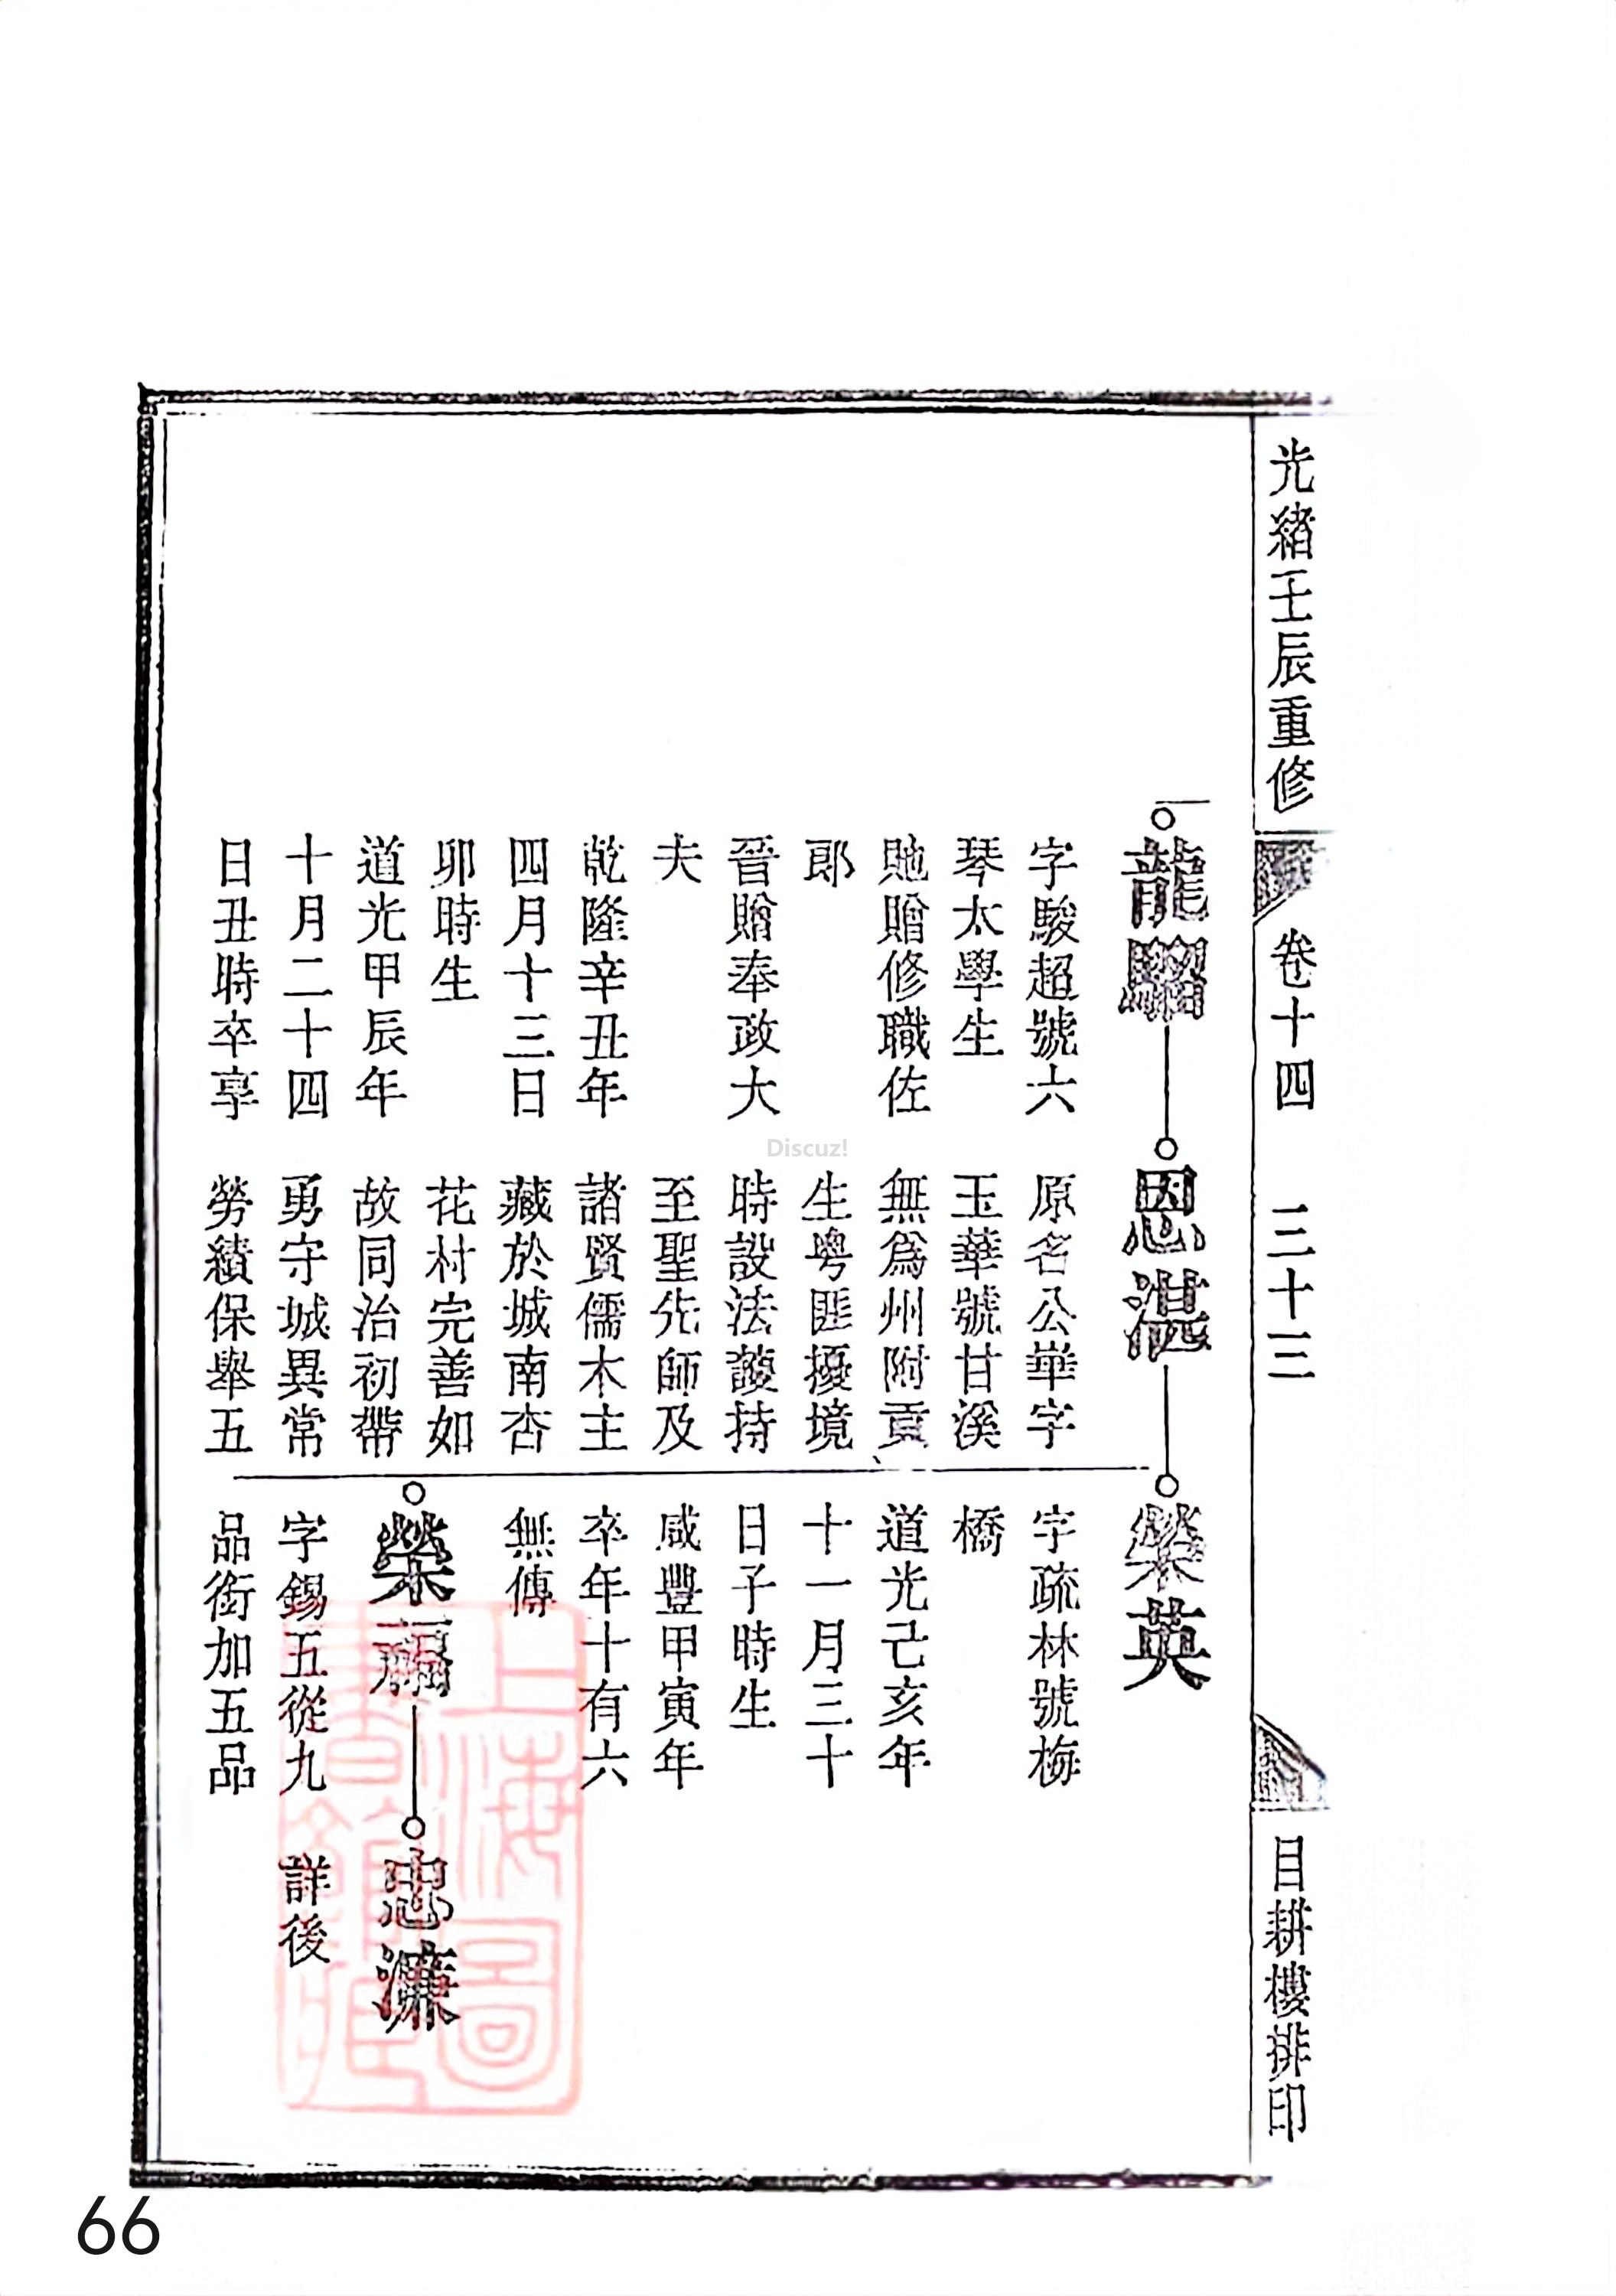 光緒壬辰重修
卷十四
三十三
目耕樓排印
龍驤
字駿超號六
琴太學生
貤贈修職佐
郎
晉贈奉政大
夫
乾隆辛丑年
四月十三日
卯時生
道光甲辰年
十月二十四
日丑時卒享
恩湛
原名公華字
玉華號甘溪
無爲州附貢
生粤匪擾境
時設法護持
至聖先師及
諸賢儒木主
藏於城南杏
花村完善如
故同治初帶
勇守城異常
勞績保舉五
榮英
字疏林號梅
橋
道光己亥年
十一月三十
日子時生
咸豐甲寅年
卒年十有六
無傳
榮福
字錫五從九
品銜加五品
忠濂
詳後
上海圖書館藏
Discuz!
66